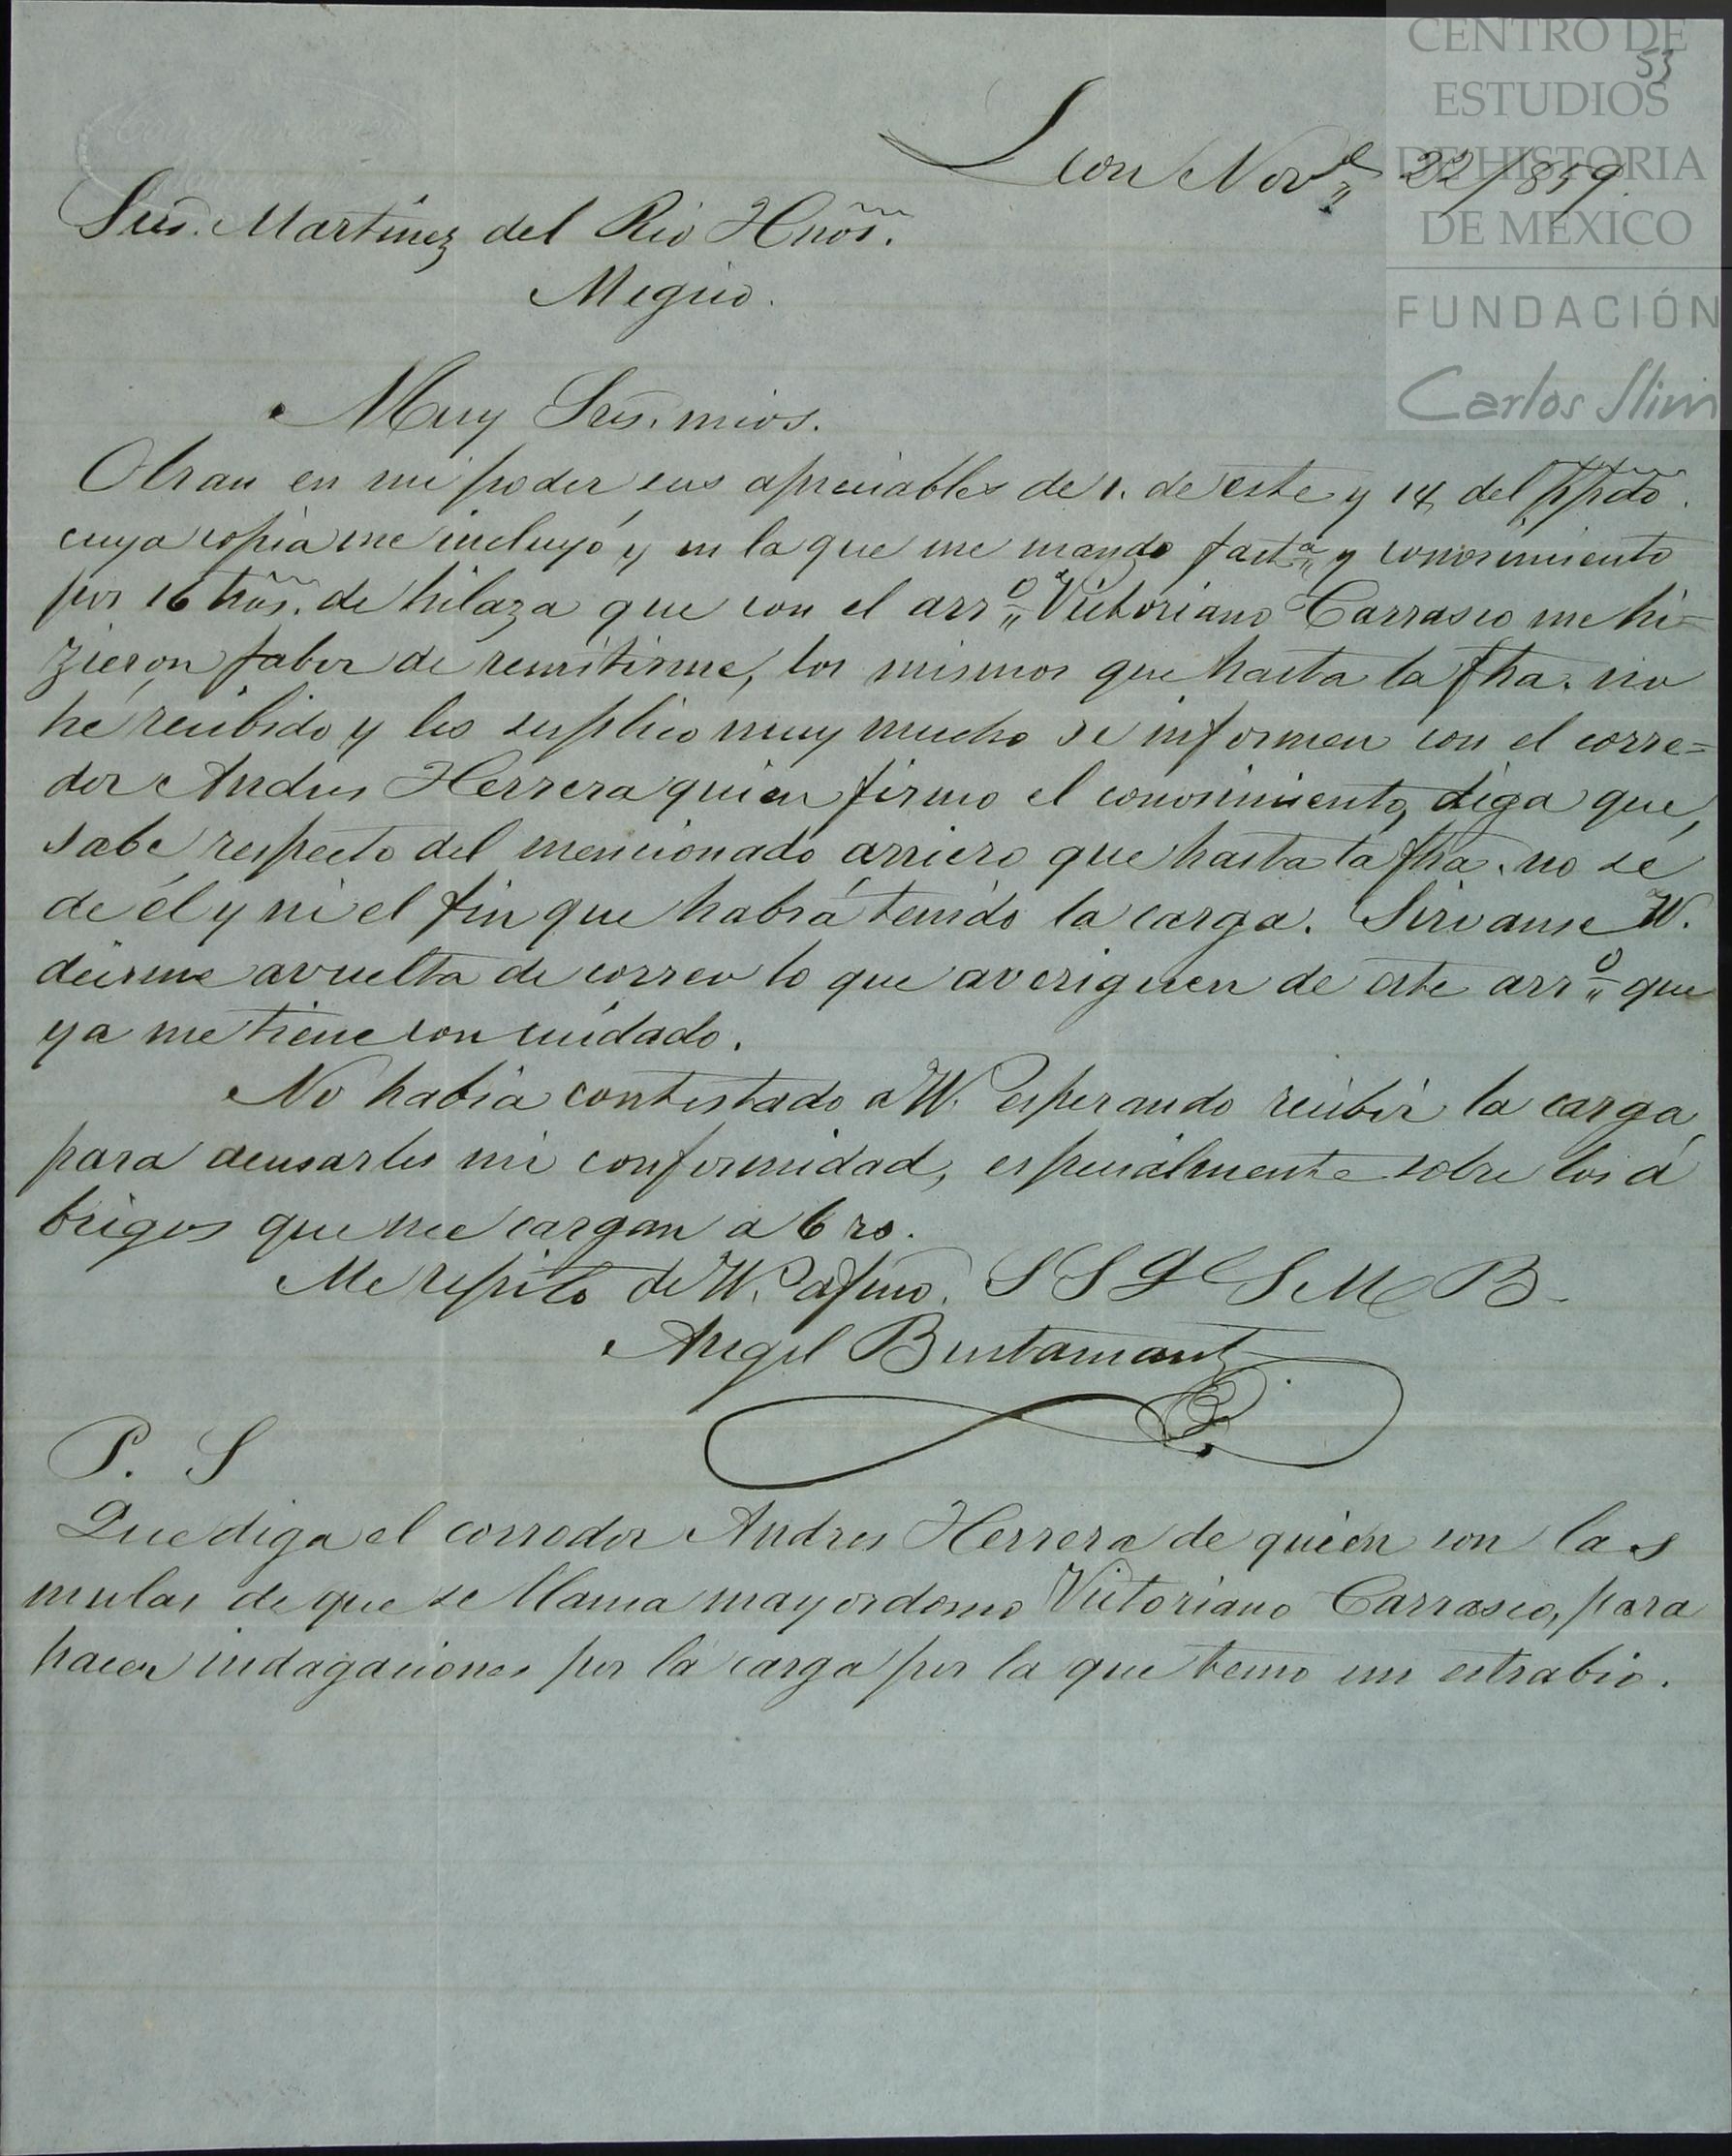 CENTRO DE
ESTUDIOS
DE HISTORIA
DE MEXICO
FUNDACIÓN
Carlos Slim
53
Leon Nov.e 22/859.
Sres. Martinez del Rio Hños.
Megico.
Muy Sres. mios.
Obran en mi poder sus apreciables de 1. de este y 14 del ppdo.
cuya copia me incluyó y en la que me mando facta. y conosimiento
por 16 de hilaza que con el arro. Victoriano Carrasco me hi=
zieron fabor de remitirme, los mismos que hasta la fha. no
hé recibido y les suplico muy mucho se informen con el corre=
dor Andres Herrera quien firmo el conosimiento, diga que
sabe respecto del mencionado arriero que hasta la fha. no sé
de él y ni el fin que habrá tenido la carga. Sirvanse W.
decirme avuelta de correo lo que averiguen de este arro. que
ya me tiene con cuidado.
No habia contestado a W. esperando recibir la carga
para acusarles mi conformidad, especialmente sobre los á
brigos que me cargan a 6 rs.
Me repito de W. afmo. S S Q S M B.
Angel Bustamante
P. S
Que diga el corredor Andres Herrera de quién son las
mulas de que se llama mayordomo Victoriano Carrasco, para
hacer indagaciones por la carga por la que temo un estrabio.